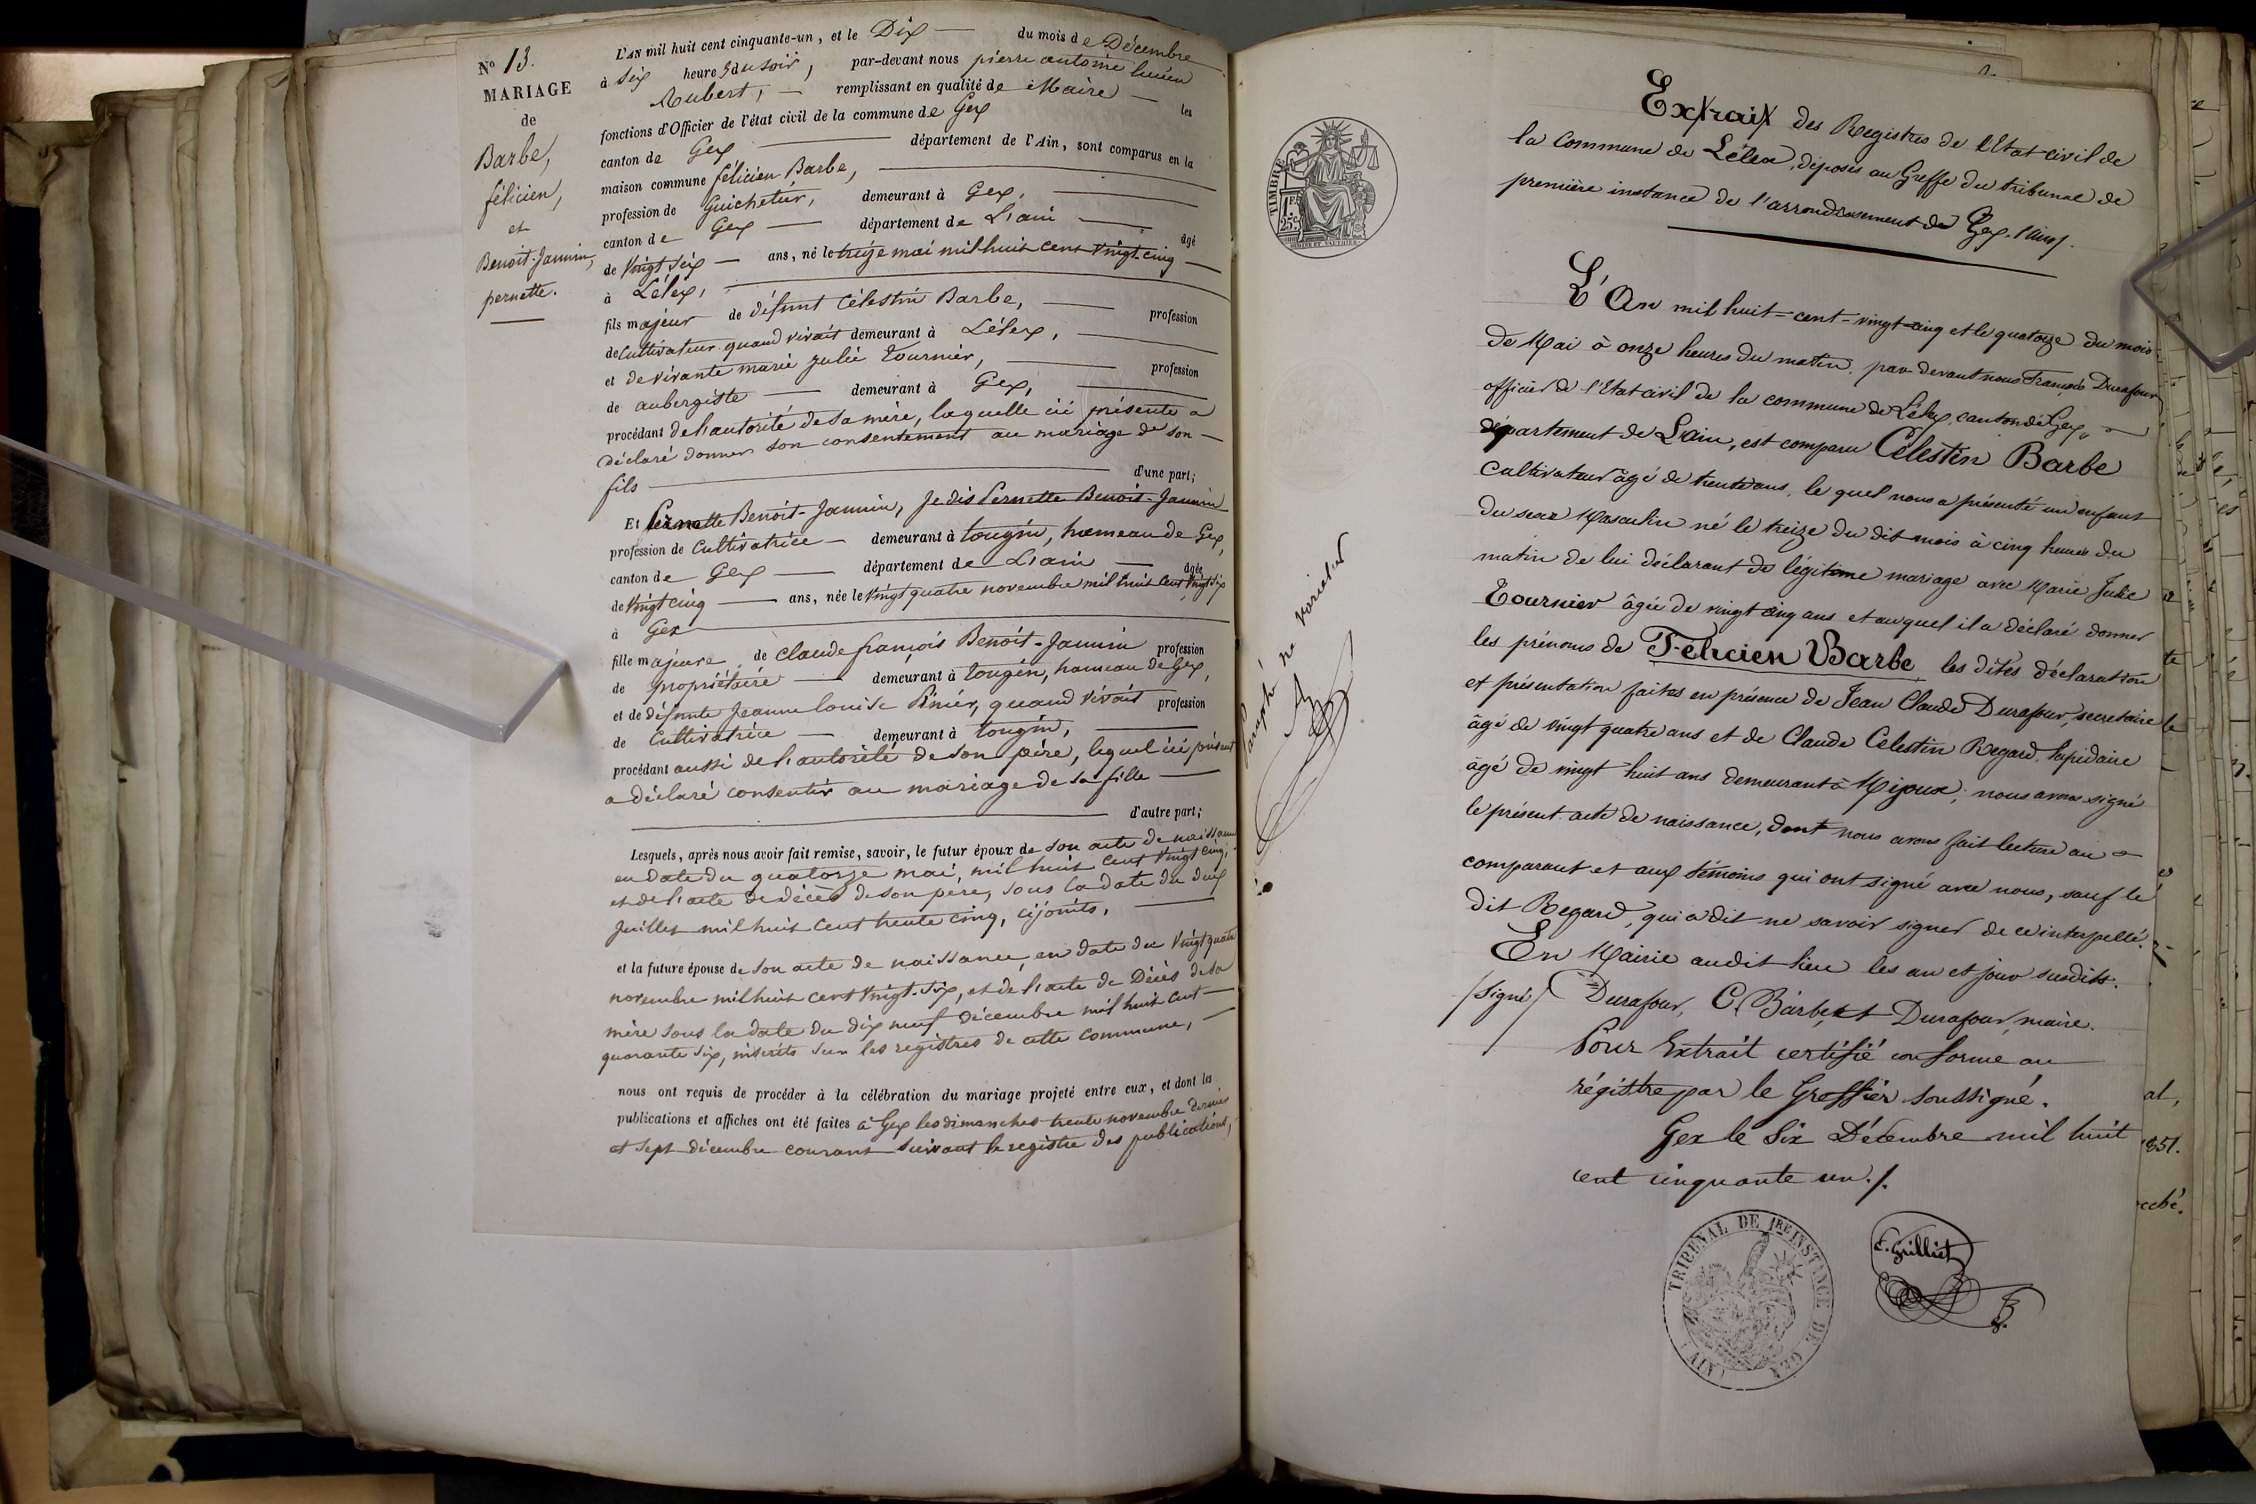 N° 13.
MARIAGE
de
Barbe,
félicien,
et
Benoit-Jannin,
pernette.
L'AN mil huit cent cinquante-un, et le Dix du mois de Décembre
à Six heures du soir, par-devant nous pierre antoine lucien
Aubert, remplissant en qualité de Maire les
fonctions d'Officier de l'état civil de la commune de Gex
canton de Gex département de l'Ain, sont comparus en la
maison commune félicien Barbe,
profession de Guichetier, demeurant à Gex,
canton de Gex département de L'ain âgé
de Vingt Six ans, né le treize mai mil huit cent Vingt-cinq
à Lélex,
fils majeur de défunt Célestin Barbe, profession
de Cultivateur quand vivait demeurant à Lélex,
et de vivante marie julie Tournier, profession
de aubergiste demeurant à Gex,
procédant de l'autorité de sa mère, laquelle ici présente a
déclaré donner son consentement au mariage de son
fils d'une part;
Et Pernette Benoit-Jannin, Je dis Pernette Benoit-Jannin
profession de Cultivatrice demeurant à tougin, hameau de Gex,
canton de Gex département de L'ain âgée
de Vingt cinq ans, née le Vingt quatre novembre mil huit cent Vingt Six
à Gex
fille majeure de Claude françois Benoit-Jannin profession
de propriétaire demeurant à tougin, hameau de Gex,
et de défunte Jeanne louise Pinier, quand vivait profession
de Cultivatrice demeurant à tougin,
procédant aussi de l'autorité de son père, lequel ici présent
a déclaré consentir au mariage de sa fille
d'autre part;
Lesquels, après nous avoir fait remise, savoir, le futur époux de son acte de naissance
en date du quatorze mai, mil huit cent Vingt cinq,
et de l'acte de décès de son père, sous la date du dix
Juillet mil huit cent trente cinq, cijoints,
et la future épouse de son acte de naissance, en date du Vingt quatre
novembre mil huit cent Vingt-Six, et de l'acte de Décès de sa
mère sous la date du dix neuf décembre mil huit cent
quarante Six, inscrits sur les registres de cette commune,
nous ont requis de procéder à la célébration du mariage projeté entre eux, et dont les
publications et affiches ont été faites à Gex les dimanches trente novembre dernier
et Sept décembre courant suivant le registre des publications,
TIMBRE
1F
25c
Paraphé ne varietur
Extrait des Registres de l'Etat civil de
la Commune de Lélex, déposés au Greffe du tribunal de
première instance de l'arrondissement de Gex. (Ain).
L'An mil huit-cent-vingt-cinq et le quatorze du mois
de Mai à onze heures du matin, par devant nous François Durafour
officier de l'Etat civil de la commune de Lélex, canton de Gex,
département de L'ain, est comparu Célestin Barbe
Cultivateur âgé de trente ans, le quel nous a présenté un enfant
du sexe Masculin né le treize du dit mois à cinq heures du
matin de lui déclarant de légitime mariage avec Marie Julie
Tournier âgée de vingt cinq ans et auquel il a déclaré donner
les prénoms de Félicien Barbe les dites déclaration
et présentation faites en présence de Jean Claude Durafour, secretaire
âgé de vingt quatre ans et de Claude Célestin Regard, lapidaire
âgé de vingt huit ans demeurant à Mijoux; nous avons signé
le présent acte de naissance, dont nous avons fait lecture au
comparant et aux témoins qui ont signé avec nous, sauf le
dit Regard, qui a dit ne savoir signer de ce interpellé.
En Mairie audit lieu les an et jour susdits.
/signé/ Durafour, C. Barbe, et Durafour, maire.
Pour Extrait certifié conforme au
régistre par le Greffier soussigné.
Gex le Six Décembre mil huit
cent cinquante un./.
TRIBUNAL DE 1RE INSTANCE DE GEX
(AIN)
al,
1851.